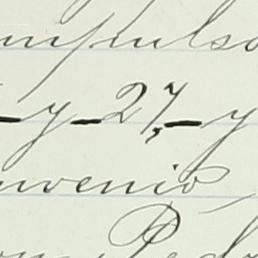 impulso
y - 27, - y
nvenio,
Pedr